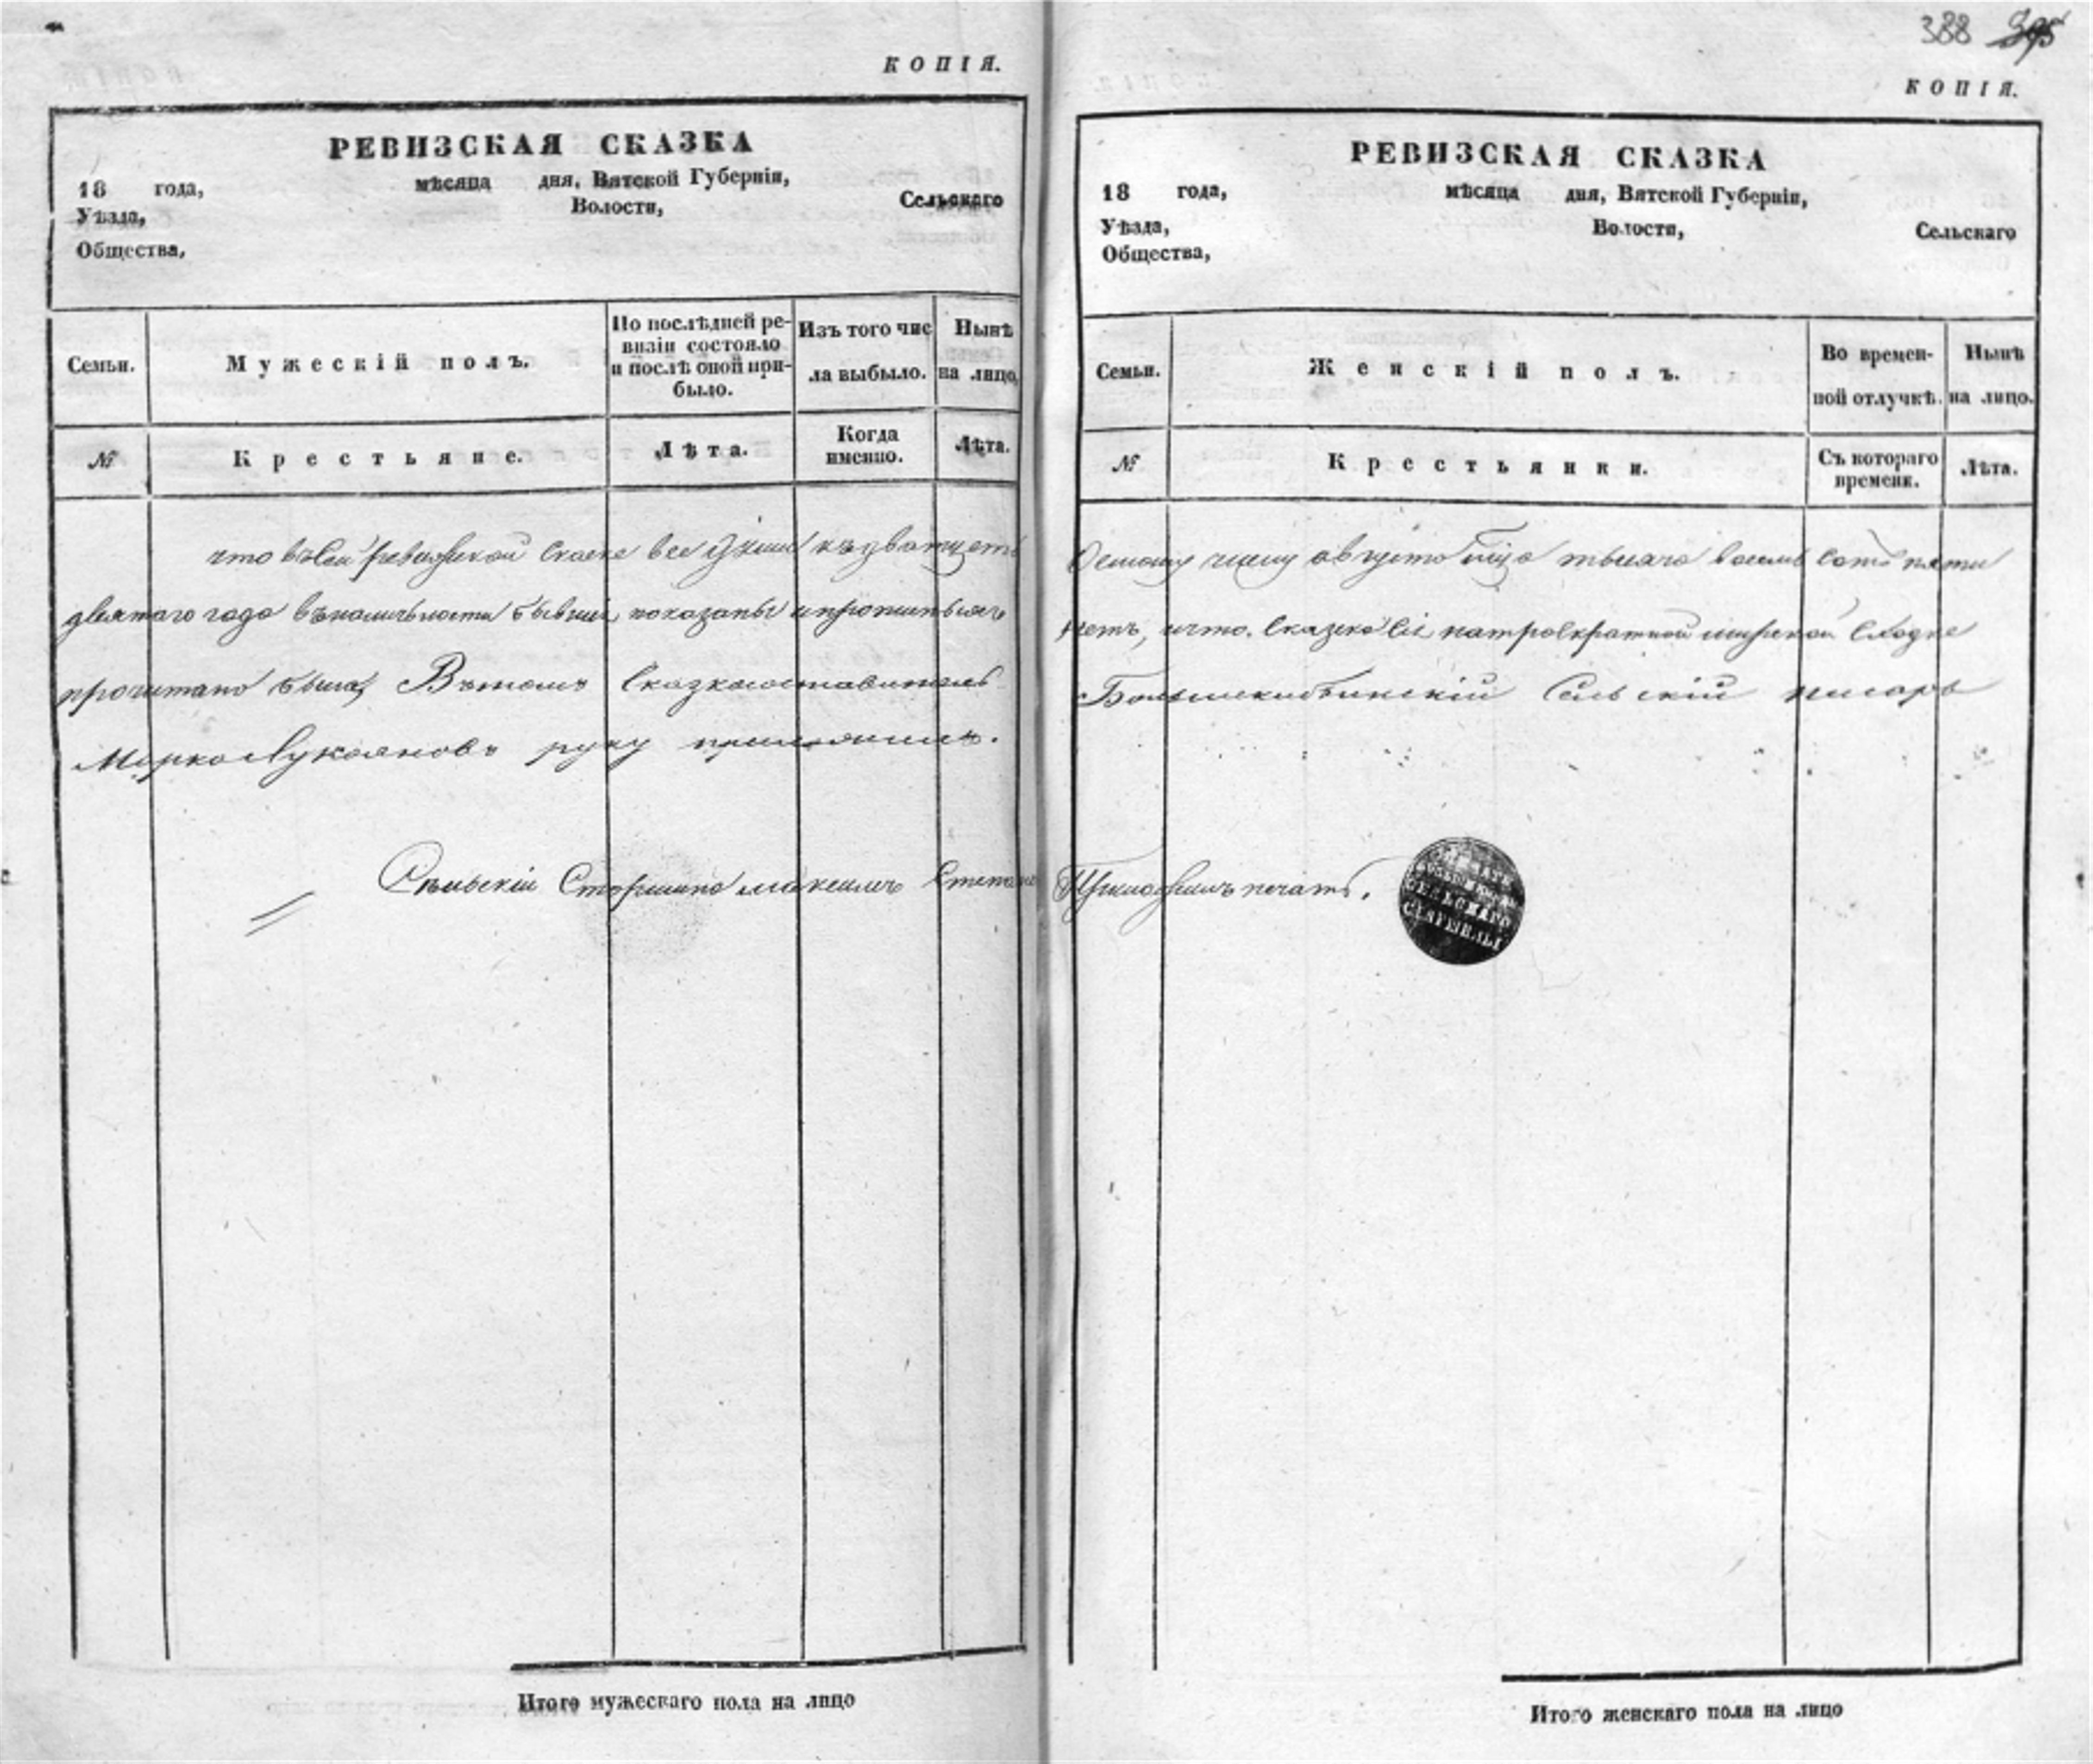 КОПІЯ.
РЕВИЗСКАЯ СКАЗКА
18 года, мѣсяца дня, Вятской Губерніи,
Уѣзда, Волости, Сельскаго
Общества,
Семьи. Мужескій полъ. По послѣдней ре-
визіи состояло
и послѣ оной при-
было. Изъ того чис
ла выбыло. Нынѣ
на лицо.
№ Крестьяне. Лѣта. Когда
именно. Лѣта.
что въ сей ревизской скаске все души къ дватцеть
девятаго года въ наличьности бывшія показаны и
прочитано была, Въ томъ Сказкосоставитель
Марко Лукояновъ руку приложилъ.
Сельскій Старшина Максимъ Степанов
Итого мужескаго пола на лицо
388 395
КОПІЯ.
РЕВИЗСКАЯ СКАЗКА
18 года, мѣсяца дня, Вятской Губерніи,
Уѣзда, Волости, Сельскаго
Общества,
Семьи. Женскій полъ. Во времен-
ной отлучкѣ. Нынѣ
на лицо.
№ Крестьянки. Съ котораго
времени. Лѣта.
Осмому числу августа тысяча восемь сотъ пяти
что сказка сія на троекратной мирской сходке
Сельскій писарь
Приложилъ печать.
СЕЛЬСКАГО
СТАРШИНЫ
Итого женскаго пола на лицо